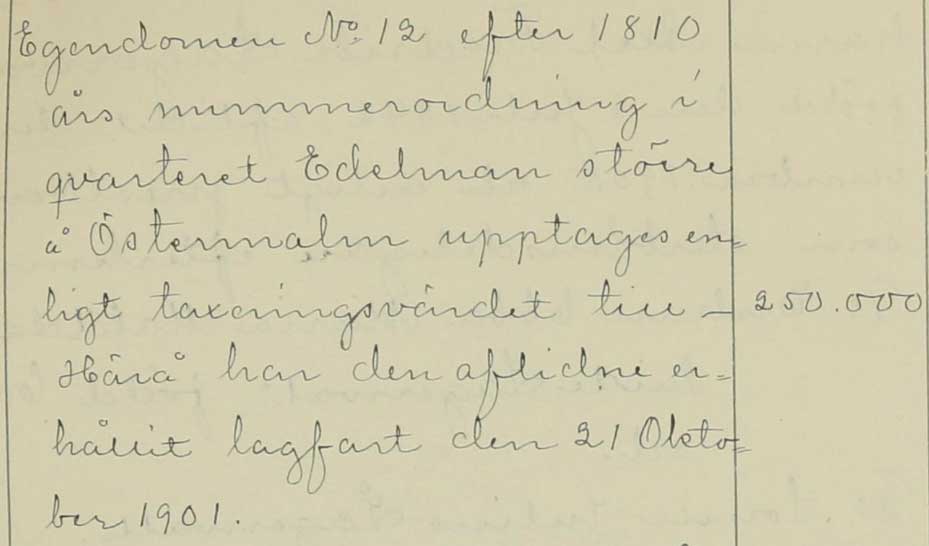 Egendomen No 12 efter 1810
års nummerordning i
qvarteret Edelman större
å Östermalm upptages en=
ligt taxeringsvärdet till — 250.000
Härå har den aflidne er=
hållit lagfart den 21 Okto=
ber 1901.